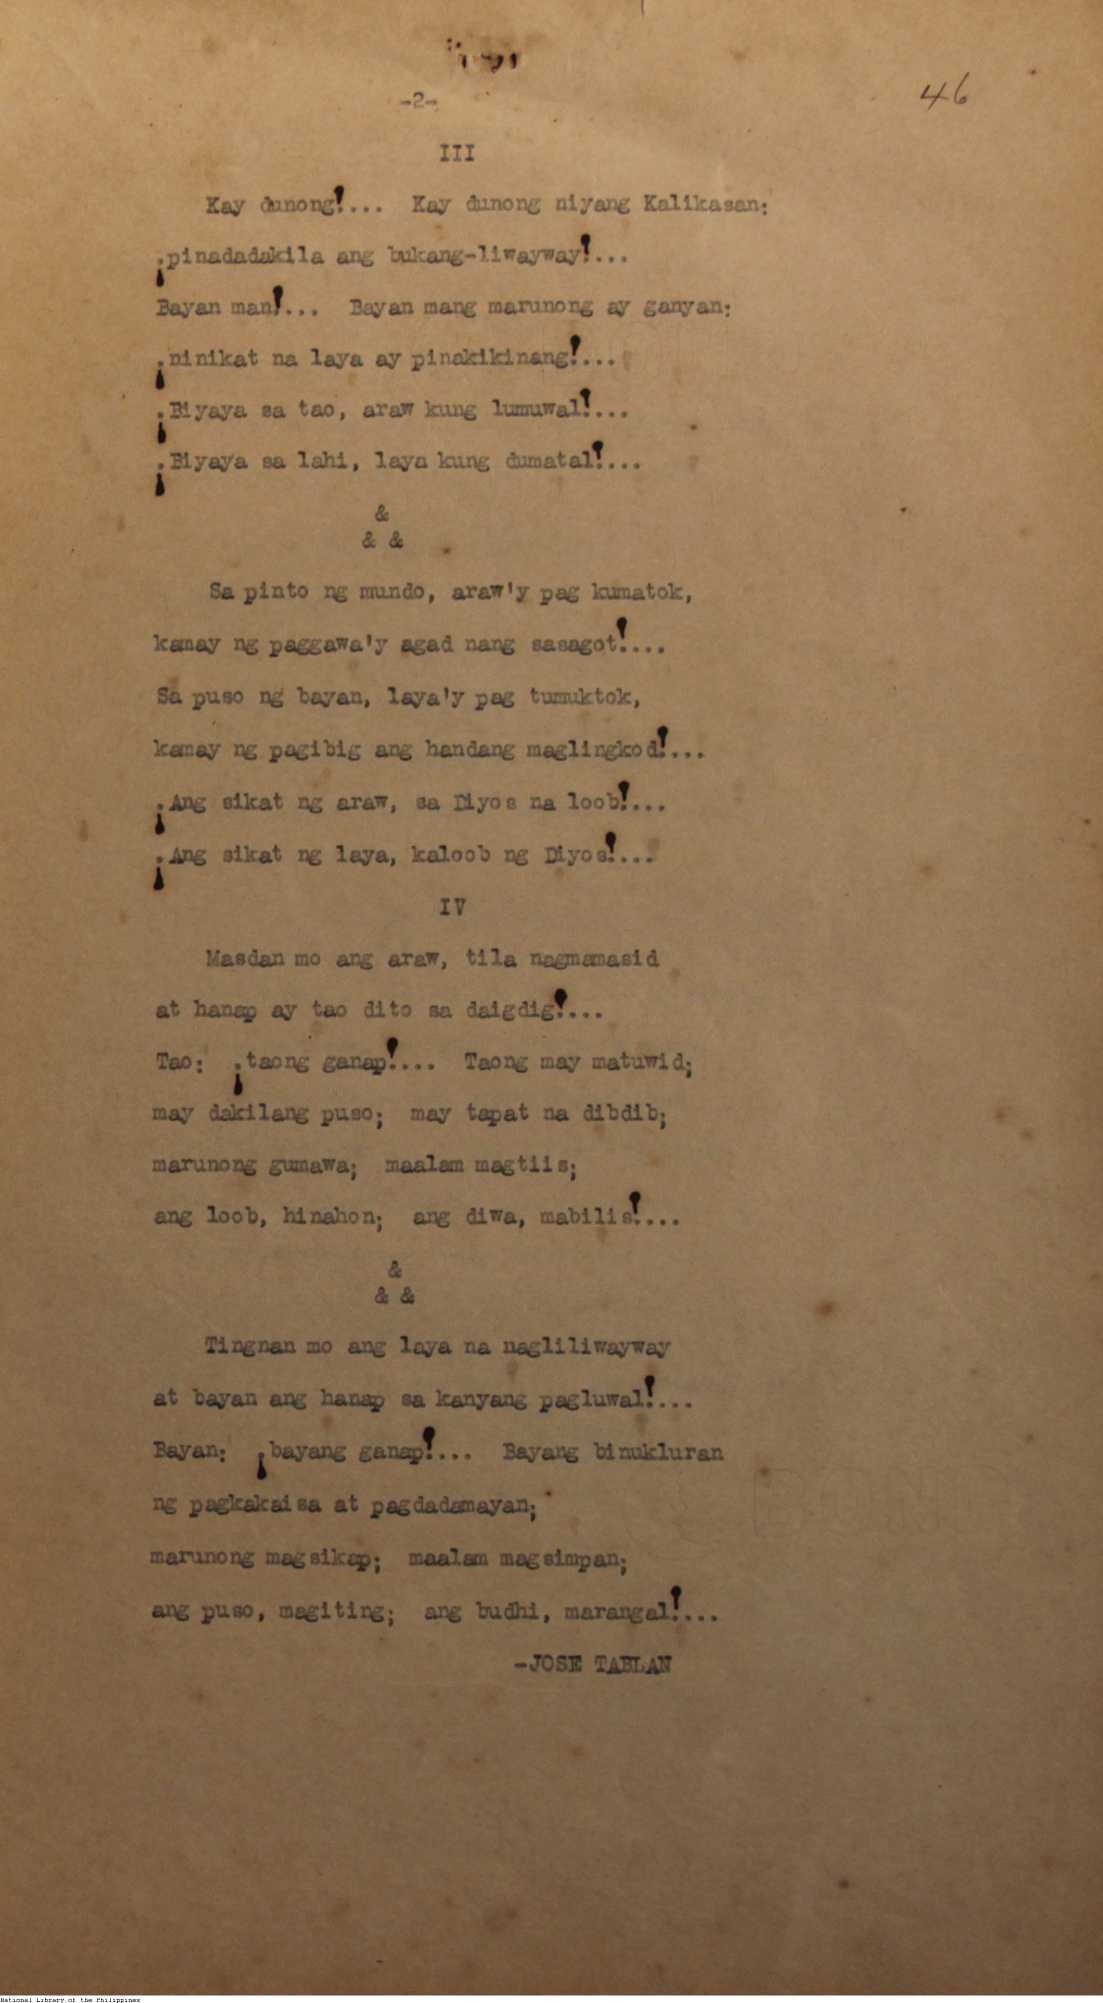 -2-
46
III
Kay dunong!.... Kay dunong niyang Kalikasan:
¡pinadadakila ang bukang-liwayway!...
Bayan man!... Bayan mang marunong ay ganyan:
¡ninikat na laya ay pinakikinang!....
¡Biyaya sa tao, araw kung lumuwal!....
¡Biyaya sa lahi, laya kung dumatal!....
&
& &
Sa pinto ng mundo, araw'y pag kumatok,
kamay ng paggawa'y agad nang sasagot!....
Sa puso ng bayan, laya'y pag tumuktok,
kamay ng pagibig ang handang maglingkod!....
¡Ang sikat ng araw, sa Diyos na loob!....
¡Ang sikat ng laya, kaloob ng Diyos!....
IV
Masdan mo ang araw, tila nagmamasid
at hanap ay tao dito sa daigdig!....
Tao: ¡taong ganap!.... Taong may matuwid;
may dakilang puso; may tapat na dibdib;
marunong gumawa; maalam magtiis;
ang loob, hinahon; ang diwa, mabilis!....
&
& &
Tingnan mo ang laya na nagliliwayway
at bayan ang hanap sa kanyang pagluwal!....
Bayan: ¡bayang ganap!.... Bayang binukluran
ng pagkakaisa at pagdadamayan;
marunong magsikap; maalam magsimpan;
ang puso, magiting; ang budhi, marangal!....
-JOSE TABLAN
National Library of the Philippines